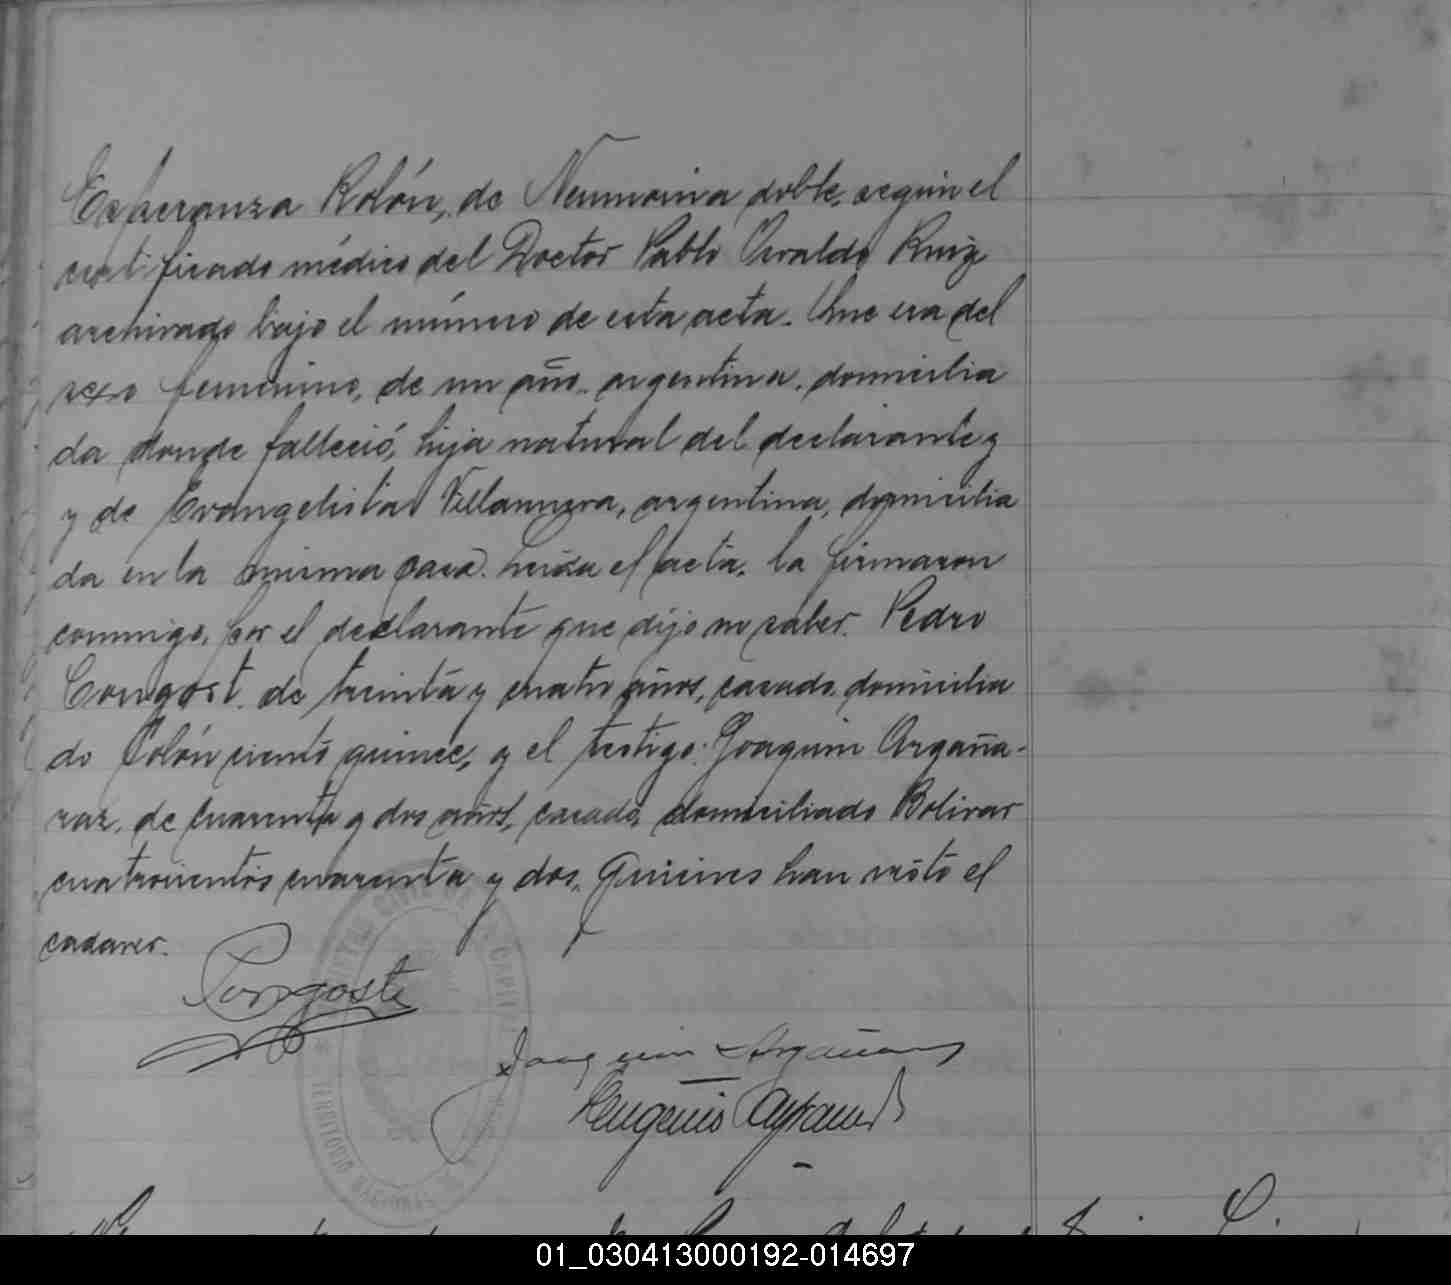 Esperanza Rolón, de Neumonia doble, según el
certificado médico del Doctor Pablo Osvaldo Ruiz
archivado bajo el número de esta acta. Que era del
sexo femenino, de un año, argentina, domicilia
da donde falleció, hija natural del declarante y
y de Evangelista Villanueva, argentina, domicilia
da en la misma casa. Leída el acta, la firmaron
conmigo, por el declarante que dijo no saber. Pedro
Congost, de treinta y cuatro años, casado, domicilia
do Colón ciento quince, y el testigo: Joaquin Argaña-
raz, de cuarenta y dos años, casado, domiciliado Bolivar
cuatrocientos cuarenta y dos, quienes han visto el
cadaver.
Congost
Joaquin Argañaraz
Eugenio
CIVIL CAPITAL
TERRITORIO NACIONAL
01_030413000192-014697